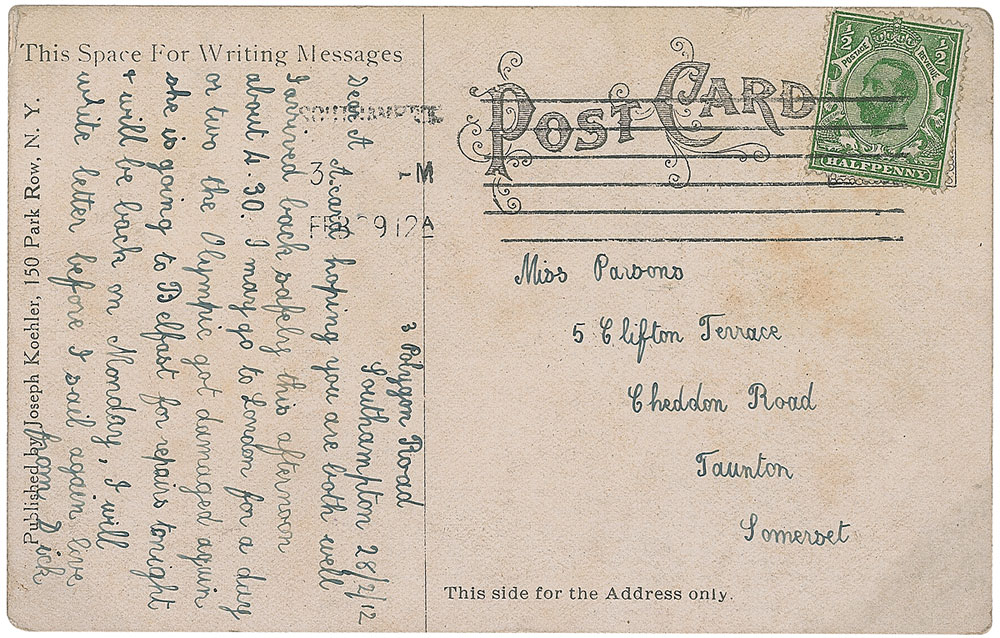 This Space For Writing Messages
3 Polygon Road
Southampton 28/2/12
Dear A A card hoping you are both well
I arrived back safely this afternoon
about 4.30. I may go to London for a day
or two the Olympic got damaged again
she is going to Belfast for repairs tonight
& will be back on Monday, I will
write better before I sail again love
from Dick
Published by Joseph Koehler, 150 Park Row, N. Y.
SOUTHAMPTON
3 M
FEB 29 12A
POST CARD
½ ½
POSTAGE REVENUE
HALFPENNY
Miss Parsons
5 Clifton Terrace
Cheddon Road
Taunton
Somerset
This side for the Address only.